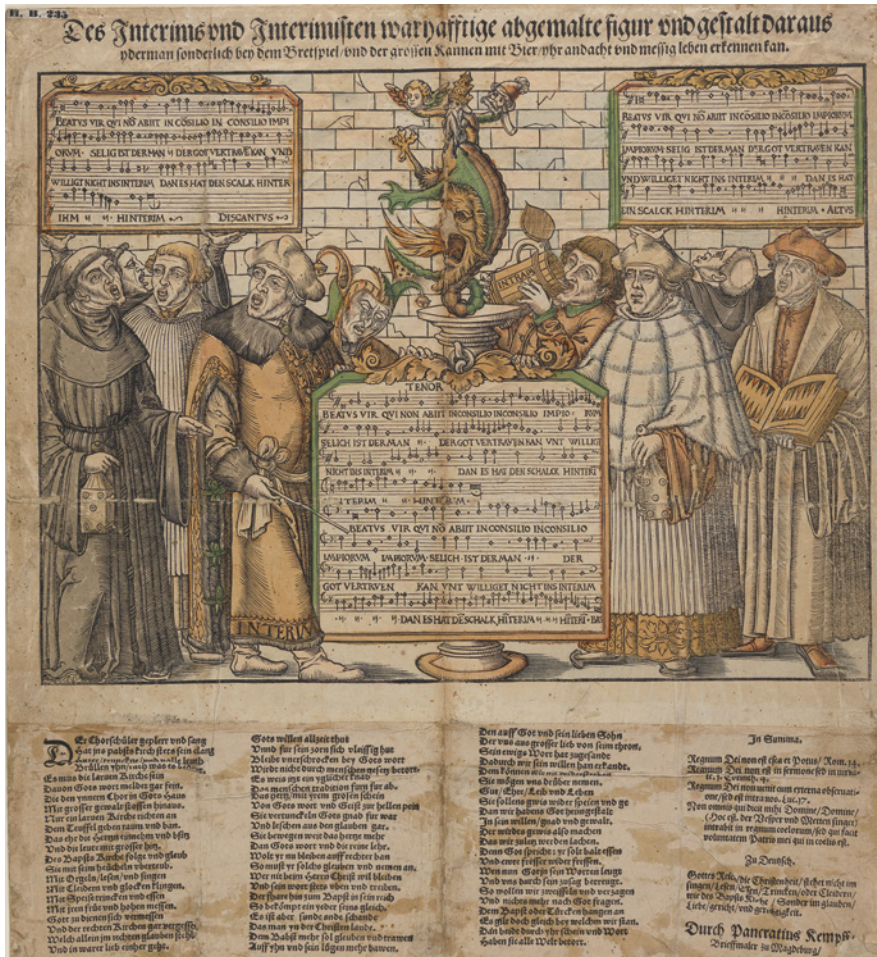 H. H. 235
Des Interims vnd Interimisten warhafftige abgemalte figur vnd gestalt daraus
yderman sonderlich bey dem Bretspiel/vnd der grossen Kannen mit Bier/yhr andacht vnd messig leben erkennen kan.
BEATVS VIR QVI NŌ ABIIT IN CŌSILIO IN CONSILIO IMPI
ORVM · SELIG IST DER MAN 〃 DER GOT VERTRAVE KAN VND
WILLIGT NICHT INS INTERIM DAN ES HAT DEN SCALK HINTER
IHM 〃 〃 HINTERIM DISCANTVS
BEATVS VIR QVI NŌ ABIIT IN CŌSILIO INCŌSILIO IMPIORVM
IMPIORVM SELIG IST DERMAN DER GOT VERTRAVEN KAN
VND WILLIGET NICHT INS INTERIM 〃 〃 〃 DAN ES HAT
EIN SCALCK HINTERIM 〃 〃 〃 HINTERIM · ALTVS
INTRAIM
TENOR
BEATVS VIR QVI NON ABIIT INCONSILIO INCONSILIO IMPIO RVM
SELICH IST DERMAN 〃 DERGOT VERTRAVEN KAN VNT WILLIGT
NICHT INS INTERIM 〃 〃 〃 DAN ES HAT DEN SCHALCK HINTERI
ITERIM 〃 〃 HINTERIM
BEATVS VIR QVI NŌ ABIIT INCONSILIO INCONSILIO
IMPIORVM IMPIORVM · SELICH · IST DERMAN 〃 DER
GOT VERTRVEN KAN VNT WILLIGET NICHT INS INTERIM
〃 〃 〃 DAN ES HAT DE SCHALK HITERIM 〃 〃 〃 HITERI · BAS
INTERIM
DEr Chorschüler geplerr vnd sang
Hat jns pabsts kirch stets sein klang
Es mus die laruen Kirche sein
Dauon Gots wort meldet gar fein.
Die den ynnern Chor in Gots Haus
Mit grosser gewalt stossen hinaus.
Nur ein laruen Kirche richten an
Dem Teuffel geben raum vnd ban.
Das ehr die Hertzen rümehen vnd bsitz
Vnd die leute mit grosser hitz.
Des Babsts Kirche folge vnd gleub
Sie mit seim breüchlen vberteub.
Mit Orgeln/lesen/vnd singen
Mit Cleidern vnd glocken klingen.
Mit Speise trincken vnd essen
Mit jren früh vnd hohen messen.
Got zu dienen sich vermessen
Vnd der rechten Kirchen gar vergessen
Welch allein jm rechten glauben steht
Vnd in warer lieb einher geht.
Gots willen allzeit thut
Vnnd fur sein zorn sich vleissig hut
Bleibt vnerschrocken bey Gots wort
Wirdt nicht durch menschen gesetz betort.
Es weis itzt ein ygklicher knab
Das menschen tradition furt fur ab.
Das hertz/mit yrem grossen schein
Von Gots wort vnd Geist zur hellen pein
Sie vertunckeln Gots gnad fur war
Vnd leschen aus den glauben gar.
Sie bewegen weit das hertze mehr
Dan Gots wort vnd die reine lehr.
Wolt yr nu bleiben auff rechter ban
So must yr solchs gleuben vnd nemen an.
Wer mit beim Herrn Christ wil bleiben
Vnd sein wort stets vben vnd treiben.
Der share hin zum Babst in sein reich
So bekömpt ein yeder seins gleich.
Es ist aber sunde ande schande
Das man yn der Christen lande.
Dem Babst mehr sol gleuben vnd trawen
Auff yhn vnd sein lügen mehr bawen.
Den auff Got vnd sein lieben Sohn
Der vns aus grosser lieb von seim thron.
Sein ewigs Wort hat zugesandt
Dadurch wir sein willen han erkandt.
Sie mögen vns drüber nemen.
Gut/Ehr/Leib vnd Leben
Sie sollens gwis wider speien vnd ge
Dan wir habens Got heimgestalt
In sein willen/gnad vnd gewalt.
Der wirdes gewis also machen
Das wir zuletz werden lachen.
Denn Got spricht: yr solt halt essen
Vnd ewer fresser wider fressen.
Wen nun Gotts sein Worten leugt
Vnd vns durch sein zusag betreugt.
So wollen wir zweiffeln vnd verzagen
Vnd nichts mehr nach Got fragen.
Dem Babst oder Türcken hangen an
Es gild doch gleich bey welchem wir stan.
Dan beidt durch yhr schein vnd Wort
Haben sie alle Welt betort.
In Summa.
Regnum Dei non est esca et Potus/Rom. 14.
Regnum Dei non est in sermone sed in
Regnum Dei non uenit cum externa obseruati-
one/sed est intra uos. Luc. 17.
Non omnis qui dicit mihi Domine/Domine/
(Hoc est. der Vesper vnd Metten singet)
intrabit in regnum coelorum/sed qui facit
voluntatem Patris mei qui in coelis est.
Zu Deutsch.
Gottes Reich/die Christenheit/stehet nicht im
singen/Lesen/Essen/Trincken/oder Cleidern/
wie des Bapsts Kirche/Sonder im glauben/
Liebe/gericht/vnd gerechtigkeit.
Durch Pancratius Kempff
Brieffmaler zu Magdeburg/